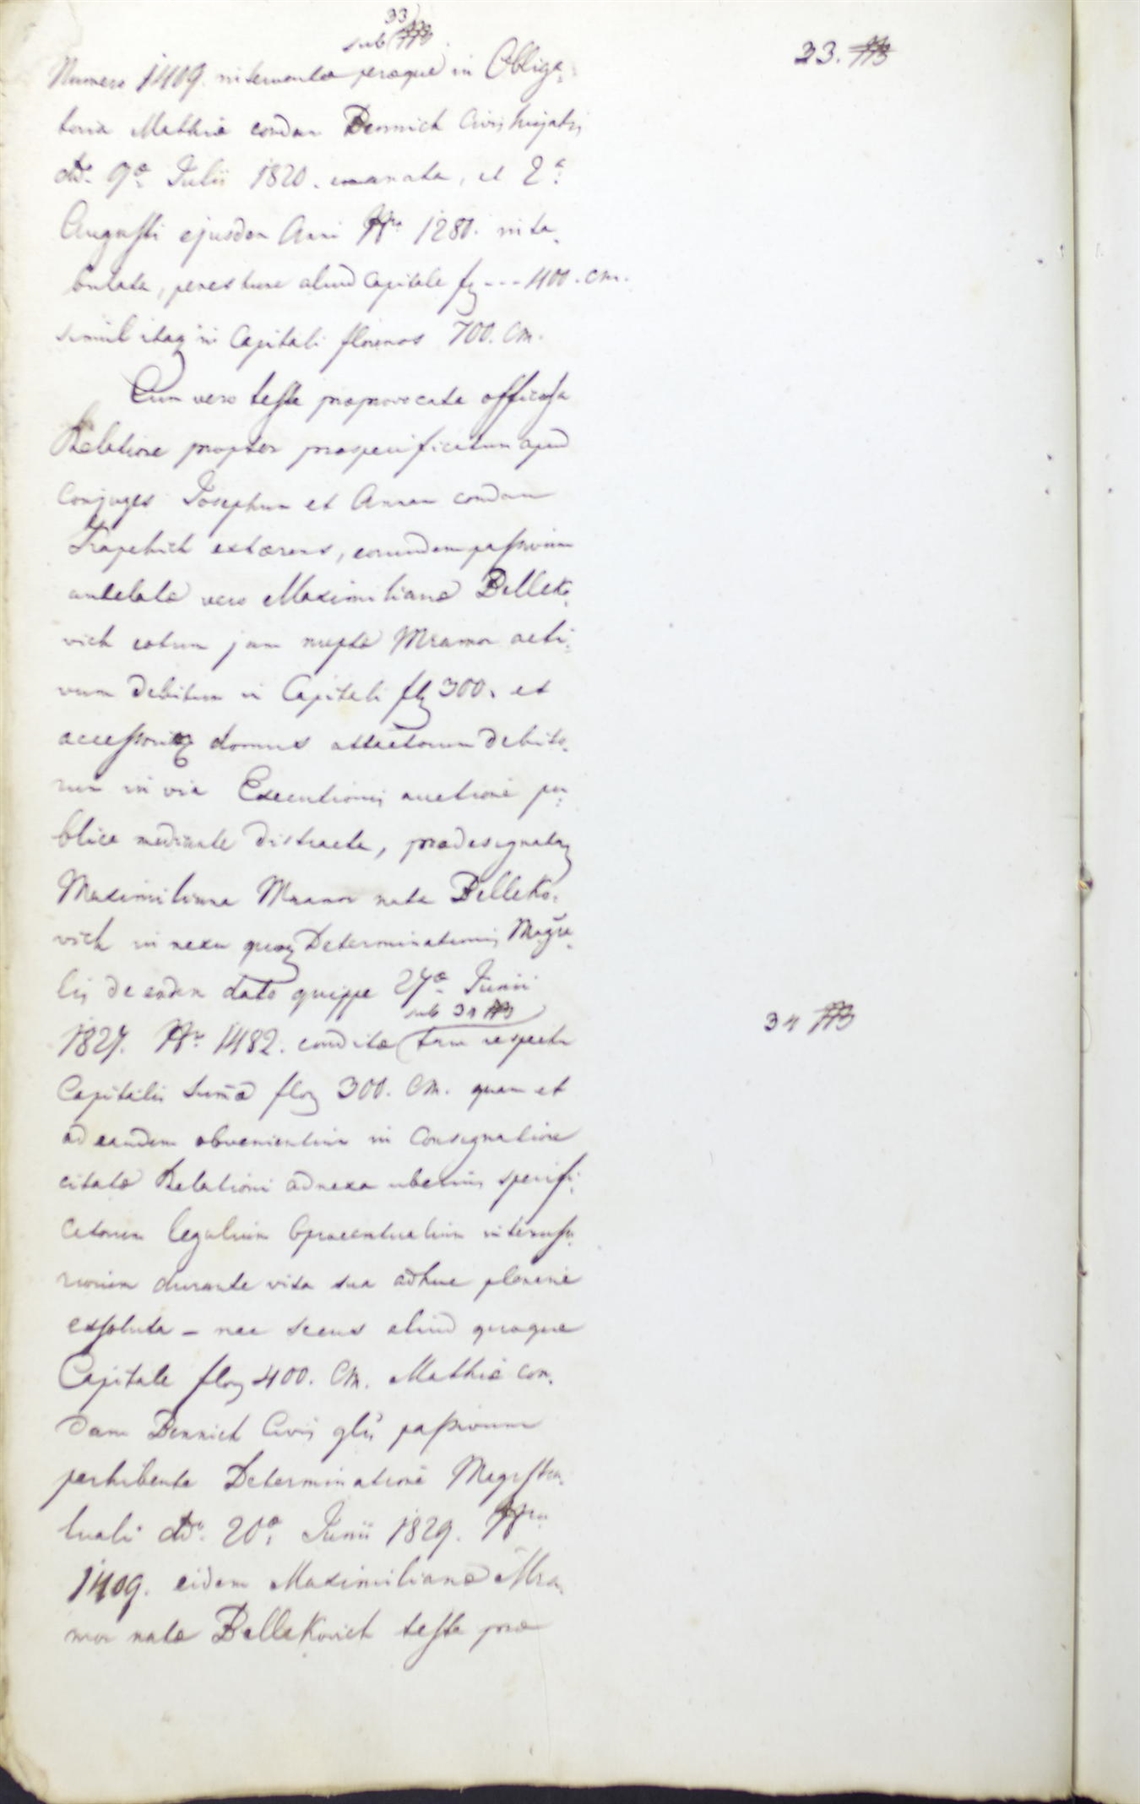 33
sub
33.
Numero 1409. intervento peræque in Obliga-
toria Mathiæ condam Bennich Civis hujatis
dto. 9a Julii 1820. emanata, et 2a
Augusti ejusdem Anni Nro 1280. inta-
bulata, penes hunc aliud Capitale f --- 400. CM.
simul itaq in Capitali florenos 700. CM.
Cum vero teste præprovocata officiosa
Relatione propter præspecificatum apud
Conjuges Josephum et Annam condam
Trapehich extærens, eorumdem passivum
antelatæ vero Maximilianæ Belleko-
vich eotum jam nuptæ Mramor acti-
vum debitum in Capitali fl 300. et
accessoriis domus attactorum debito-
rum in via Executionis auctione pu-
blica mediante distracta, prædesignata
Maximiliana Mramor nata Belleko-
vich in nexu quoq Determinationis Magra-
lis de eodem dato quippe 27a Junii
sub 34
34
1827. Nro 1482. conditæ tam respectu
Capitalis sumæ flor 300. CM. quam et
ad eandem obvenientium in Consignatione
citatæ Relationi adnexa uberius specifi-
catorum legalium 6 procentualium interusu-
riorum durante vita sua adhuc plenarie
exsoluta – nec secus aliud quoque
Capitale flor 400. CM. Mathiæ con-
dam Bennich Civis glis passivum
perhibente Determinatione Magistra-
tuali dto. 20a Junii 1829. Nro
1409. eidem Maximilianæ Mra-
mor natæ Bellekovich teste præ